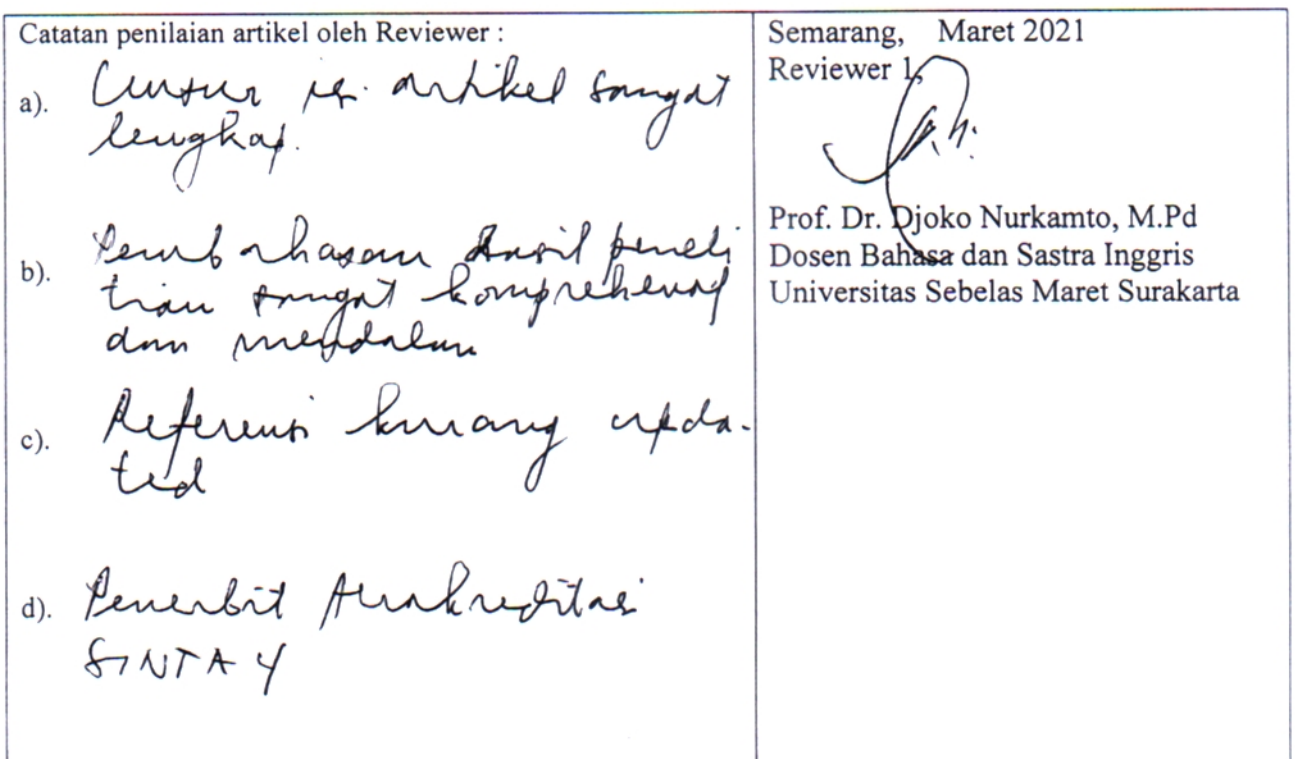 Catatan penilaian artikel oleh Reviewer :
a). Unsur isi artikel sangat
lengkap.
b). Pembahasan hasil peneli
tian sangat komprehensif
dan mendalam
c). Referensi kurang upda-
ted
d). Penerbit terakreditasi
SINTA 4
Semarang, Maret 2021
Reviewer 1,
Prof. Dr. Djoko Nurkamto, M.Pd
Dosen Bahasa dan Sastra Inggris
Universitas Sebelas Maret Surakarta